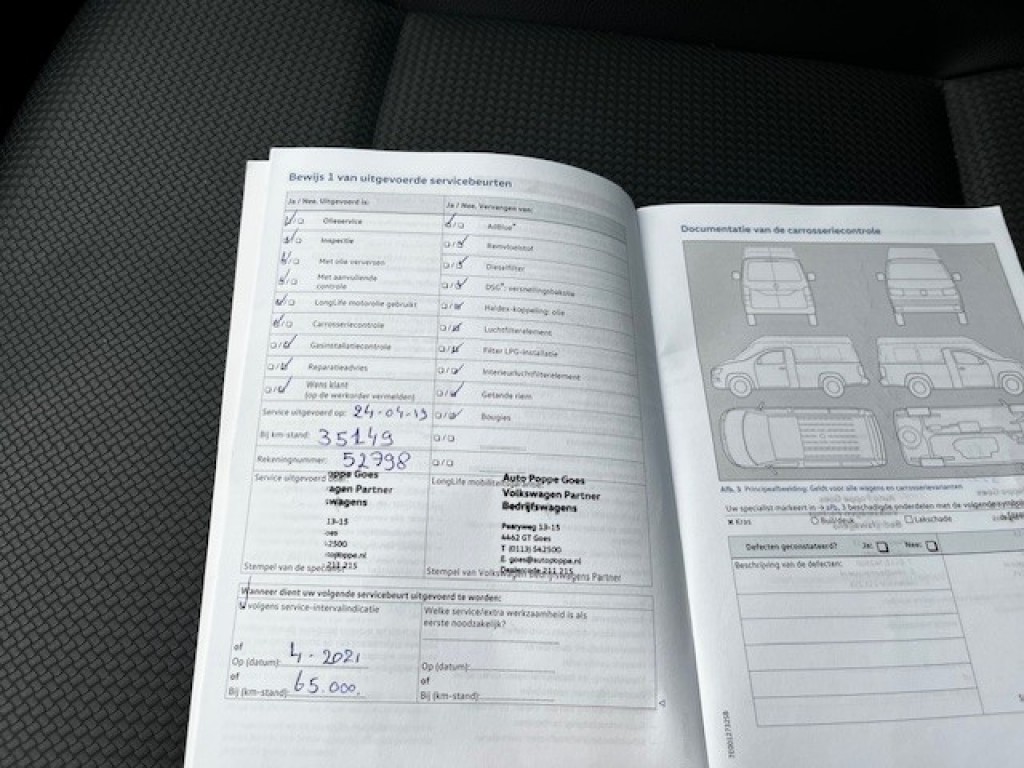 Bewijs 1 van uitgevoerde servicebeurten
Ja / Nee, Uitgevoerd is:
Ja / Nee, Vervangen van:
Olieservice
AdBlue®
Inspectie
Remvloeistof
Met olie verversen
Dieselfilter
Met aanvullende
controle
DSG®: versnellingsbakolie
LongLife motorolie gebruikt
Haldex-koppeling: olie
Carrosseriecontrole
Luchtfilterelement
Gasinstallatiecontrole
Filter LPG-installatie
Reparatieadvies
Interieurluchtfilterelement
Wens klant
(op de werkorder vermelden)
Getande riem
Service uitgevoerd op: 24-04-19
Bougies
Bij km-stand: 35149
Rekeningnummer: 52798
Service uitgevoerd
LongLife
oppe Goes
agen Partner
swagens
13-15
oes
2500
topoppe.nl
211 215
Stempel van de specialist
Auto Poppe Goes
Volkswagen Partner
Bedrijfswagens
Pearyweg 13-15
4462 GT Goes
T (0113) 542500
E goes@autopoppe.nl
Dealercode 211 215
Stempel van Volkswagen Bedrijfswagens Partner
Wanneer dient uw volgende servicebeurt uitgevoerd te worden:
volgens service-intervalindicatie
of
Op (datum): 4-2021
of
Bij (km-stand): 65.000,
Welke service/extra werkzaamheid is als
eerste noodzakelijk?
Op (datum):
of
Bij (km-stand):
Documentatie van de carrosseriecontrole
Afb. 3 Principeafbeelding: Geldt voor alle wagens en carrosserievarianten
Uw specialist markeert in → afb. 3 beschadigde onderdelen met de volgende
× Kras
Buil/deuk
Lakschade
Defecten geconstateerd? Ja: Nee:
Beschrijving van de defecten: